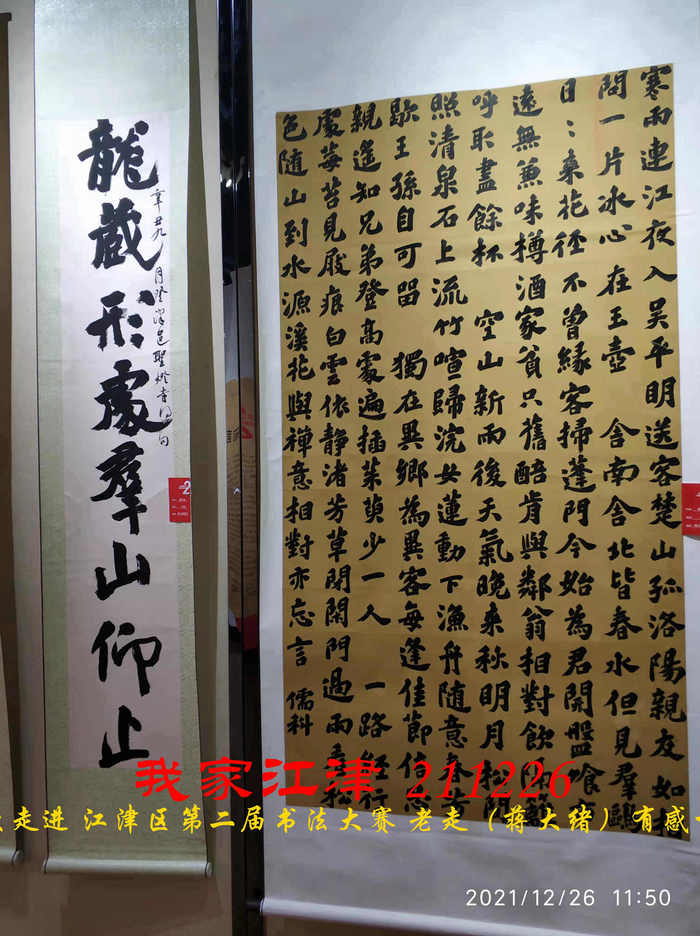 寒雨連江夜入吴平明送客楚山孤洛陽親友如
問一片冰心在玉壺 舍南舍北皆春水但見羣鷗
日〻来花徑不曾緣客掃蓬門今始為君開盤飧
遠無兼味樽酒家貧只舊醅肯與鄰翁相對飲隔籬
呼取盡餘杯 空山新雨後天氣晚来秋明月松間
照清泉石上流竹喧歸浣女蓮動下漁舟隨意春芳
歇王孫自可留 獨在異鄉為異客每逢佳節倍思
親遥知兄弟登高處遍插茱萸少一人 一路經行
處莓苔見屐痕白雲依靜渚芳草閉閑門過雨看松
色隨山到水源溪花與禪意相對亦忘言 儒科
龍蔵形處羣山仰止
辛丑九月登
聖燈寺
句
2
我家江津 211226
走进 江津区第二届书法大赛 老走（蒋大绪）有感
2021/12/26 11:50